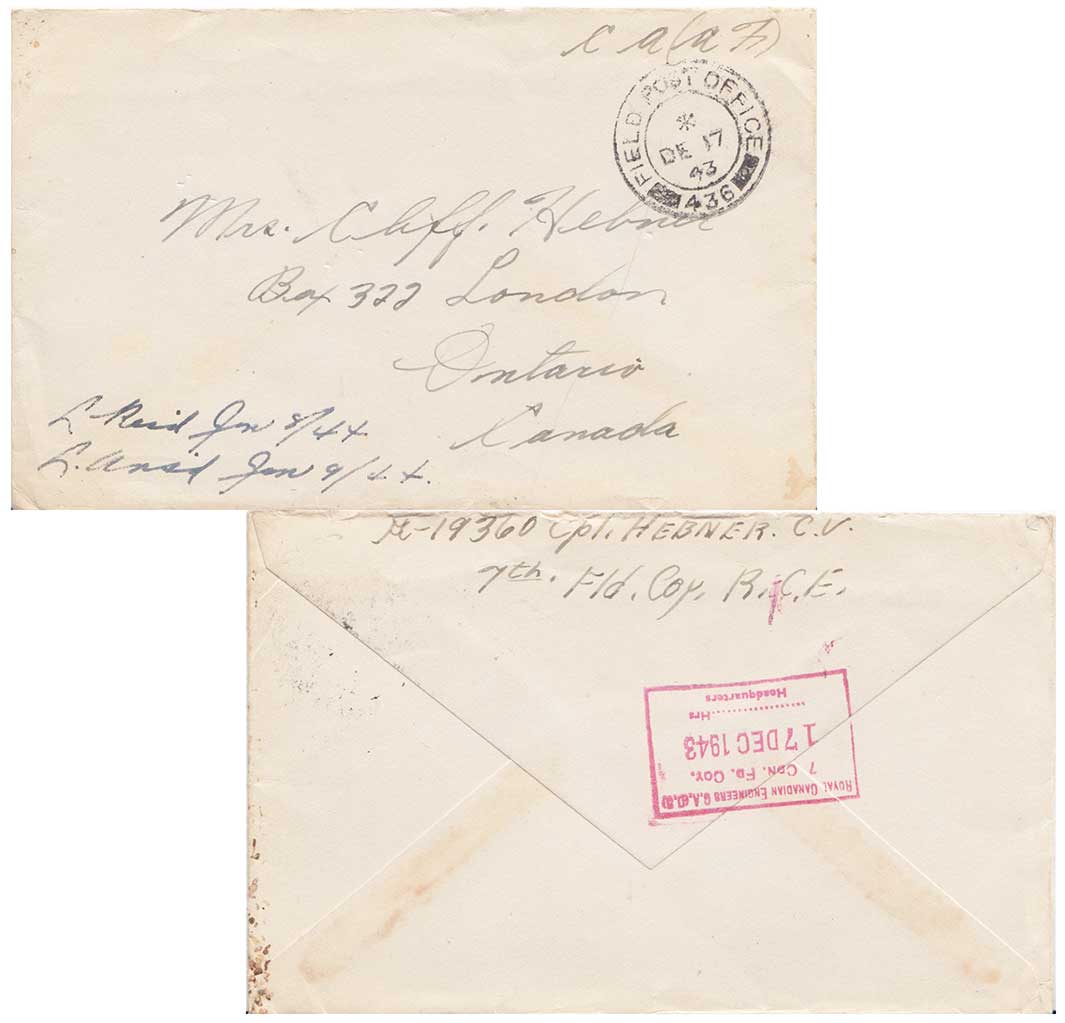 C A (A F)
FIELD POST OFFICE
*
DE 17
43
436
Mrs. Cliff. Hebner
Box 322 London
Ontario
Canada
L. Recd Jn 8/44.
L. Ansd Jan 9/44.
A-19360 Cpl. HEBNER. C.V.
7th. Fld. Coy. R.C.E.
ROYAL CANADIAN ENGINEERS C.A.(O.S)
7 CDN. FD. COY.
17 DEC 1943
............Hrs
Headquarters